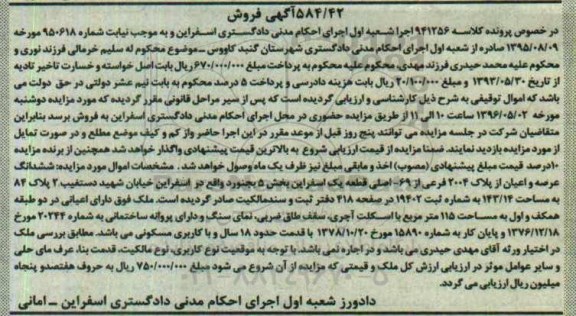 ۵۸۴/۴۲آگهی فروش
در خصوص پرونده کلاسه ۹۴۱۲۵۶ اجرا شعبه اول اجرای احکام مدنی دادگستری اسفراین و به موجب نیابت شماره ۹۵۰۶۱۸ مورخه
۱۳۹۵/۰۸/۰۹ صادره از شعبه اول اجرای احکام مدنی دادگستری شهرستان گنبد کاووس ـ موضوع محکوم له سلیم خرمالی فرزند نوری و
محکوم علیه محمد حیدری فرزند مهدی محکوم علیه محکوم به پرداخت مبلغ ۶۷۰/۰۰۰/۰۰۰ ریال بابت اصل خواسته و خسارت تاخیر تادیه
از تاریخ ۱۳۹۳/۰۵/۳۰ و مبلغ ۲۰/۱۰۰/۰۰۰ ریال بابت هزینه دادرسی و پرداخت ۵ درصد محکوم به بابت نیم عشر دولتی در حق دولت می
باشد که اموال توقیفی به شرح ذیل کارشناسی و ارزیابی گردیده است که پس از سیر مراحل قانونی مقرر گردیده که مورد مزایده دوشنبه
مورخه ۱۳۹۶/۰۵/۰۲ ساعت ۱۰ الی ۱۱ از طریق مزایده حضوری در محل اجرای احکام مدنی دادگستری اسفراین به فروش برسد بنابراین
متقاضیان شرکت در جلسه مزایده می توانند پنج روز قبل از موعد مقرر در این اجرا حاضر و از کم و کیف موضع مطلع و در صورت تمایل
از مورد مزایده بازدید نمایند. ضمنا مزایده از قیمت ارزیابی شروع به بالاترین قیمت پیشنهادی واگذار خواهد شد همچنین از برنده مزایده
۱۰درصد قیمت مبلغ پیشنهادی (مصوب) اخذ و مابقی مبلغ نیز ظرف یک ماه وصول خواهد شد . مشخصات اموال مورد مزایده: ششدانگ
عرصه و اعیان از پلاک ۲۰۰۴ فرعی از ۶۹- اصلی قطعه یک اسفراین بخش ۵ بجنورد واقع در اسفراین خیابان شهید دستغیب۲ پلاک ۸۴
به مساحت ۱۴۳/۱۴ به شماره ثبت ۱۹۴۰۲ در صفحه ۴۱۸ دفتر ثبت و سندمالکیت صادر گردیده است. ملک فوق دارای اعیانی در دو طبقه
همکف و اول به مساحت ۱۱۵ متر مربع با اسکلت آجری، سقف طاق ضربی، نمای سنگ و دارای پروانه ساختمانی به شماره ۲۰۲۴۴ مورخ
۱۳۷۶/۱۲/۱۸ و پایان کار به شماره ۱۵۸۹۰ مورخ ۱۳۷۸/۱۰/۲۰ با قدمت حدود ۱۸ سال و با کاربری مسکونی می باشد. مطابق بررسی ملک
در اختیار ورثه آقای مهدی حیدری می باشد و در اجاره نمی باشد. با توجه به موقعیت نوع کاربری، نوع مالکیت، قدمت بنا، عرف های حلی
و سایر عوامل موثر در ارزیابی ارزش کل ملک و قیمتی که مزایده از آن شروع می شود مبلغ ۷۵۰/۰۰۰/۰۰۰ ریال به حروف هفتصدو پنجاه
میلیون ریال ارزیابی می گردد.
دادورز شعبه اول اجرای احکام مدنی دادگستری اسفراین ـ امانی